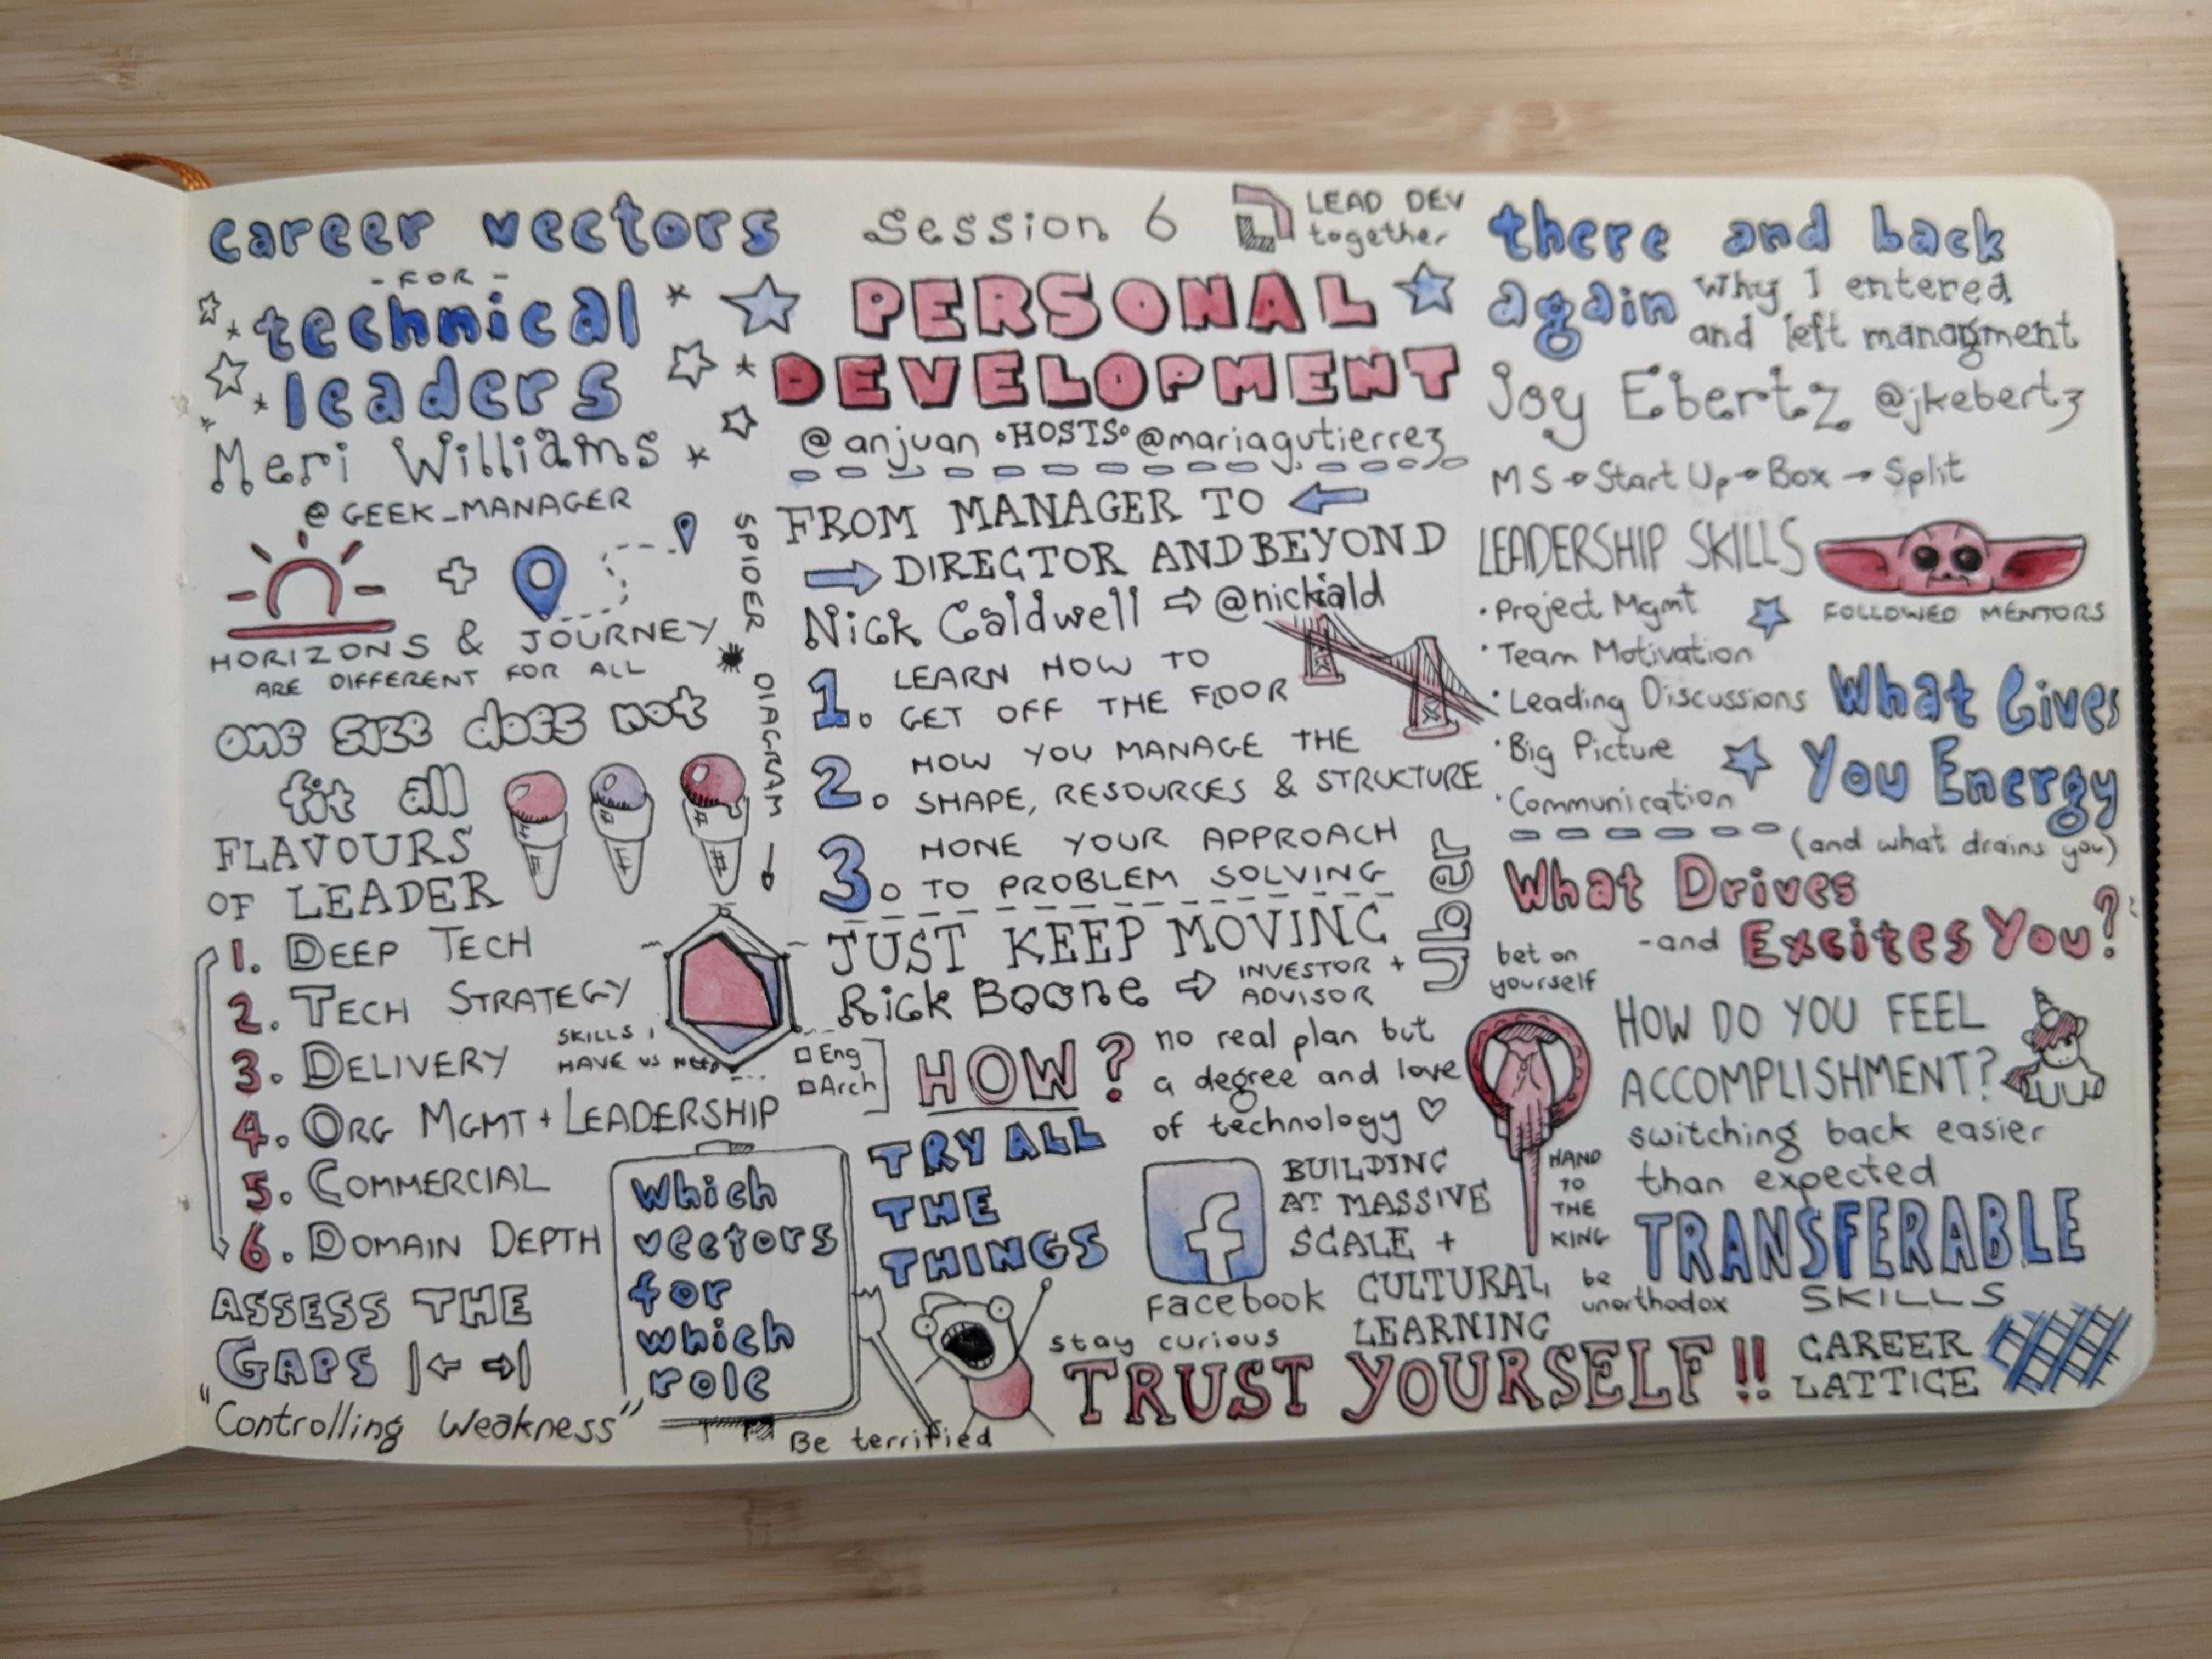 career vectors
- FOR -
technical
leaders
Meri Williams
@GEEK_MANAGER
+
HORIZONS & JOURNEY
ARE DIFFERENT FOR ALL
one size does not
fit all
FLAVOURS
OF LEADER
1. DEEP TECH
2. TECH STRATEGY
3. DELIVERY
4. ORG MGMT + LEADERSHIP
5. COMMERCIAL
6. DOMAIN DEPTH
SPIDER
DIAGRAM
SKILLS I
HAVE VS NEED
ASSESS THE
GAPS
"Controlling Weakness"
which
vectors
for
which
role
Session 6
LEAD DEV
together
PERSONAL
DEVELOPMENT
@anjuan •HOSTS• @mariagutierrez
FROM MANAGER TO
DIRECTOR AND BEYOND
Nick Caldwell ⇨ @nickjald
1. LEARN HOW TO
GET OFF THE FLOOR
2. HOW YOU MANAGE THE
SHAPE, RESOURCES & STRUCTURE
3. HONE YOUR APPROACH
TO PROBLEM SOLVING
JUST KEEP MOVING
Rick Boone ⇨ INVESTOR +
ADVISOR
uber
Eng
Arch
HOW?
no real plan but
a degree and love
of technology ♡
TRY ALL
THE
THINGS
Be terrified
f
Facebook
BUILDING
AT MASSIVE
SCALE +
CULTURAL
LEARNING
stay curious
TRUST YOURSELF!!
bet on
yourself
HAND
TO
THE
KING
be
unorthodox
there and back
again
Why I entered
and left managment
Joy Ebertz @jkebertz
MS → Start Up → Box → Split
LEADERSHIP SKILLS
• Project Mgmt
• Team Motivation
• Leading Discussions
• Big Picture
• Communication
FOLLOWED MENTORS
What Gives
You Energy
(and what drains you)
What Drives
-and Excites You?
HOW DO YOU FEEL
ACCOMPLISHMENT?
switching back easier
than expected
TRANSFERABLE
SKILLS
CAREER
LATTICE